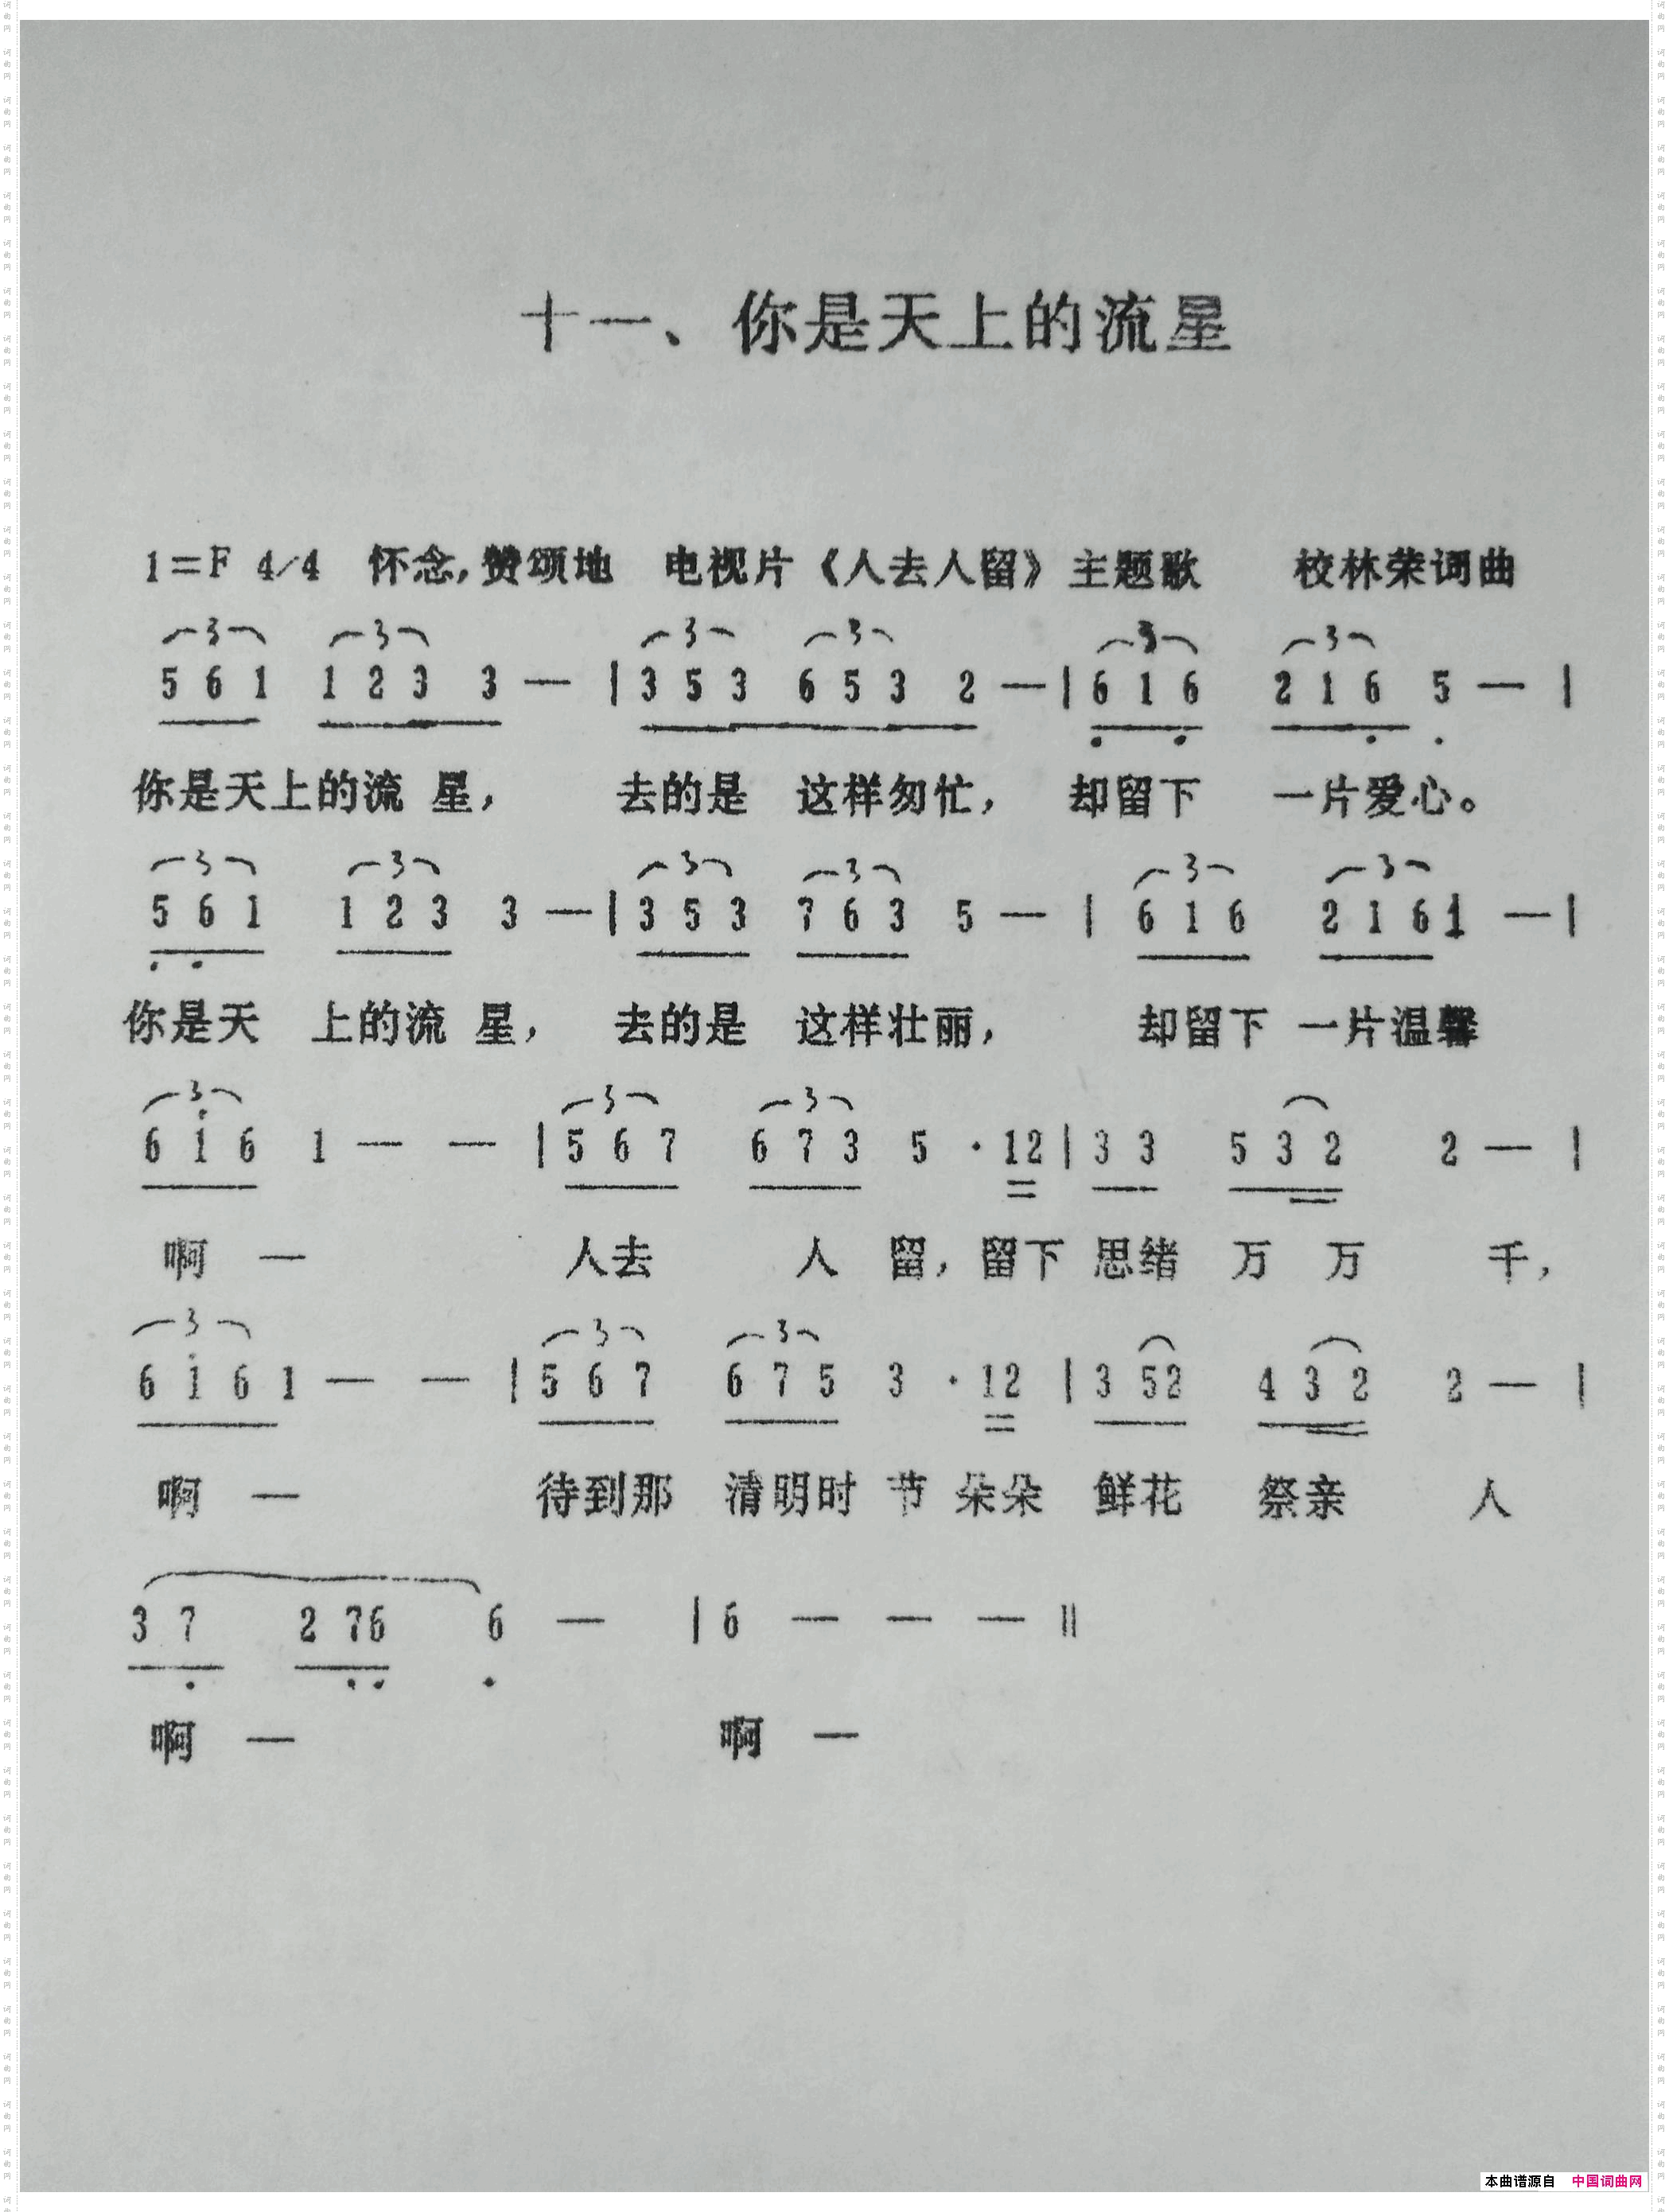 十一、你是天上的流星
1=F 4/4 怀念,赞颂地 电视片《人去人留》主题歌 校林荣词曲
3 3 3 3 3 3
5 6 1 1 2 3 3 — | 3 5 3 6 5 3 2 — | 6 1 6 2 1 6 5 — |
你是天上的流 星, 去的是 这样匆忙, 却留下 一片爱心。
3 3 3 3 3 3
5 6 1 1 2 3 3 — | 3 5 3 7 6 3 5 — | 6 1 6 2 1 6 1 — |
你是天 上的流 星, 去的是 这样壮丽, 却留下 一片温馨
3 3 3
6 1 6 1 — — | 5 6 7 6 7 3 5 · 12 | 3 3 5 3 2 2 — |
啊 — 人去 人 留, 留下 思绪 万 万 千,
3 3 3
6 1 6 1 — — | 5 6 7 6 7 5 3 · 12 | 3 52 4 3 2 2 — |
啊 — 待到那 清明时 节 朵朵 鲜花 祭亲 人
3 7 2 76 6 — | 6 — — — ‖
啊 — 啊 —
本曲谱源自 中国词曲网